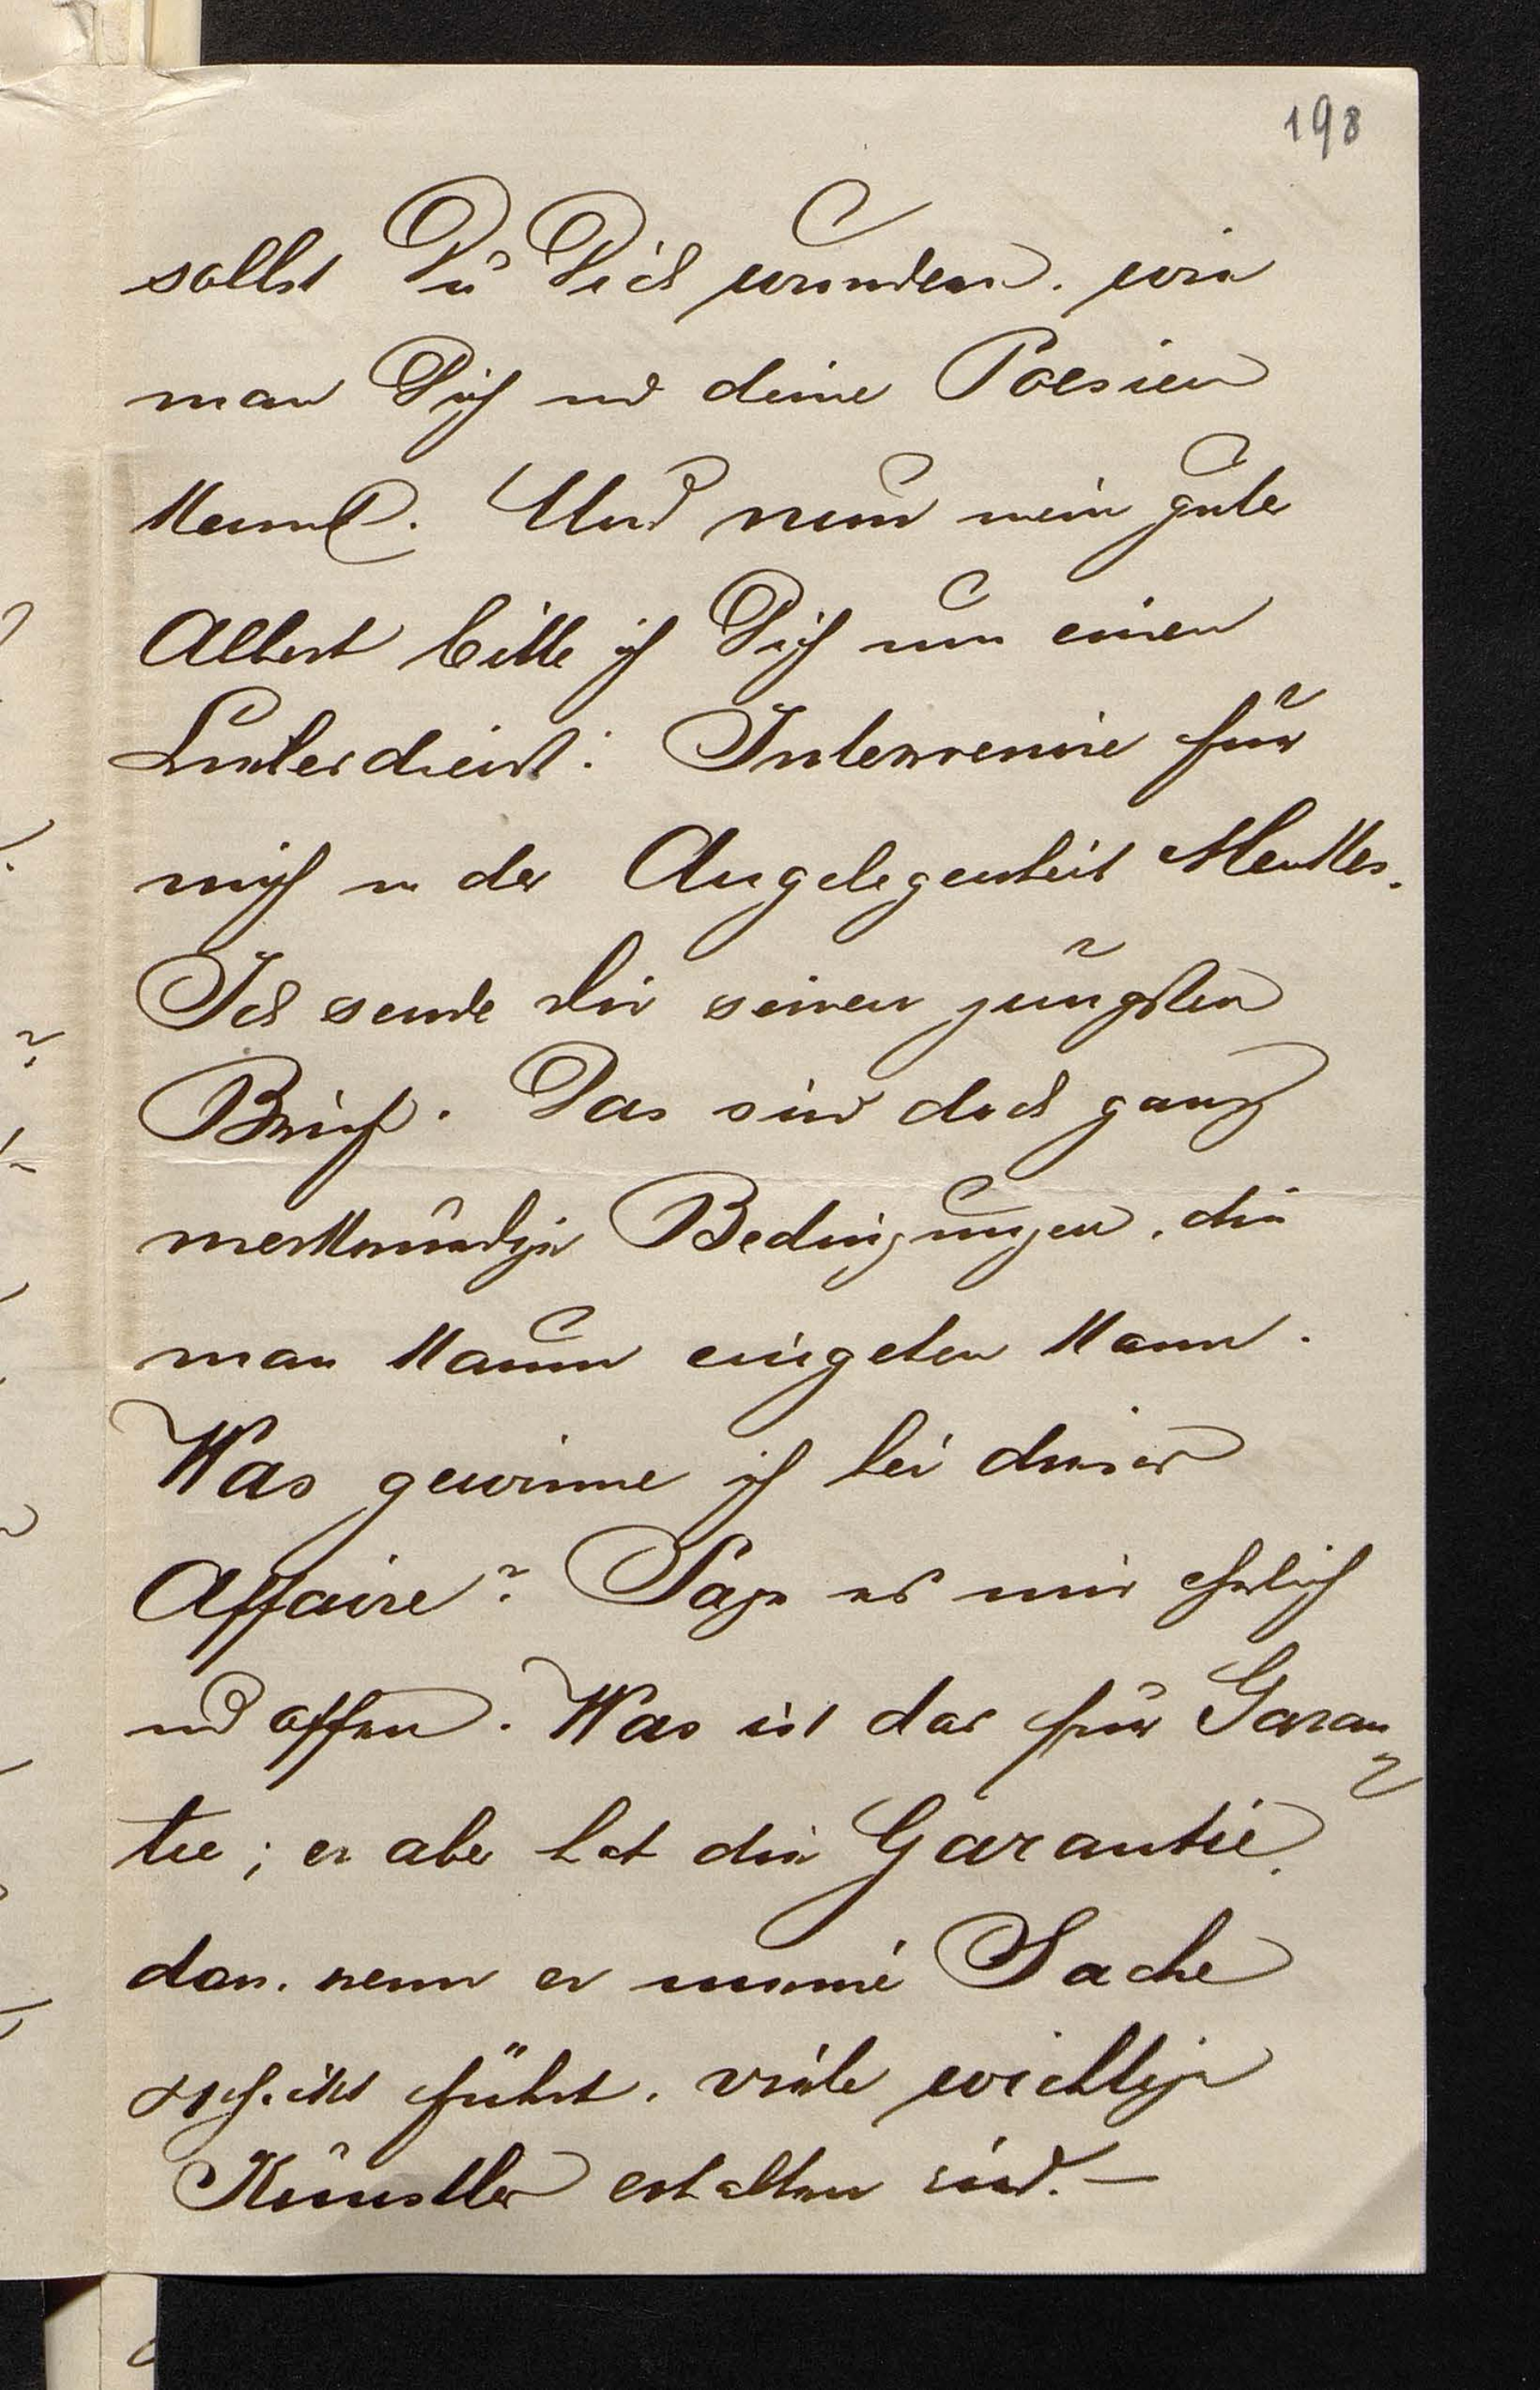 198
sollst Du Dich wundern, wie
man Dich und deine Poesien
kennt. Und nun mein guter
Albert bitte ich Dich um einen
Liebesdienst: Interveniere für
mich in der Angelegenheit Menkes.
Ich sende Dir seinen jüngsten
Brief. Das sind doch ganz
merkwürdige Bedingungen, die
man kaum eingehen kann.
Was gewinne ich bei dieser
Affaire? Sage es mir ehrlich
und offen. Was ist das für Garan-
tie; er aber hat die Garantie,
dass, wenn er meine Sache
führt, viele wichtige
Künstler enthalten sind. —